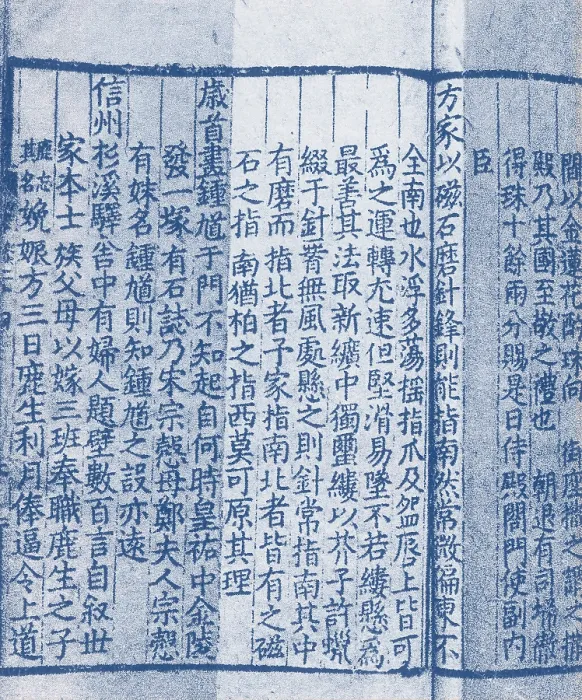 閣以金蓮花酌珠向　御座撒之謂之撒
殿乃其國至敬之禮也　朝退有司埽徹
得珠十餘兩分賜是日侍殿閤門使副内
臣
方家以磁石磨針鋒則能指南然常微偏東不
全南也水浮多蕩搖指爪及盌脣上皆可
爲之運轉尤速但堅滑易墜不若縷懸爲
最善其法取新纊中獨蠒縷以芥子許蠟
綴于針腰無風處懸之則針常指南其中
有磨而指北者予家指南北者皆有之磁
石之指南猶柏之指西莫可原其理
歲首畫鍾馗于門不知起自何時皇祐中金陵
發一塚有石誌乃宋宗愨母鄭夫人宗愨
有妹名鍾馗則知鍾馗之設亦遠
信州杉溪驛舍中有婦人題壁數百言自叙世
家本士族父母以嫁三班奉職鹿生之子
鹿忘其名娩娠方三日鹿生利月俸逼令上道